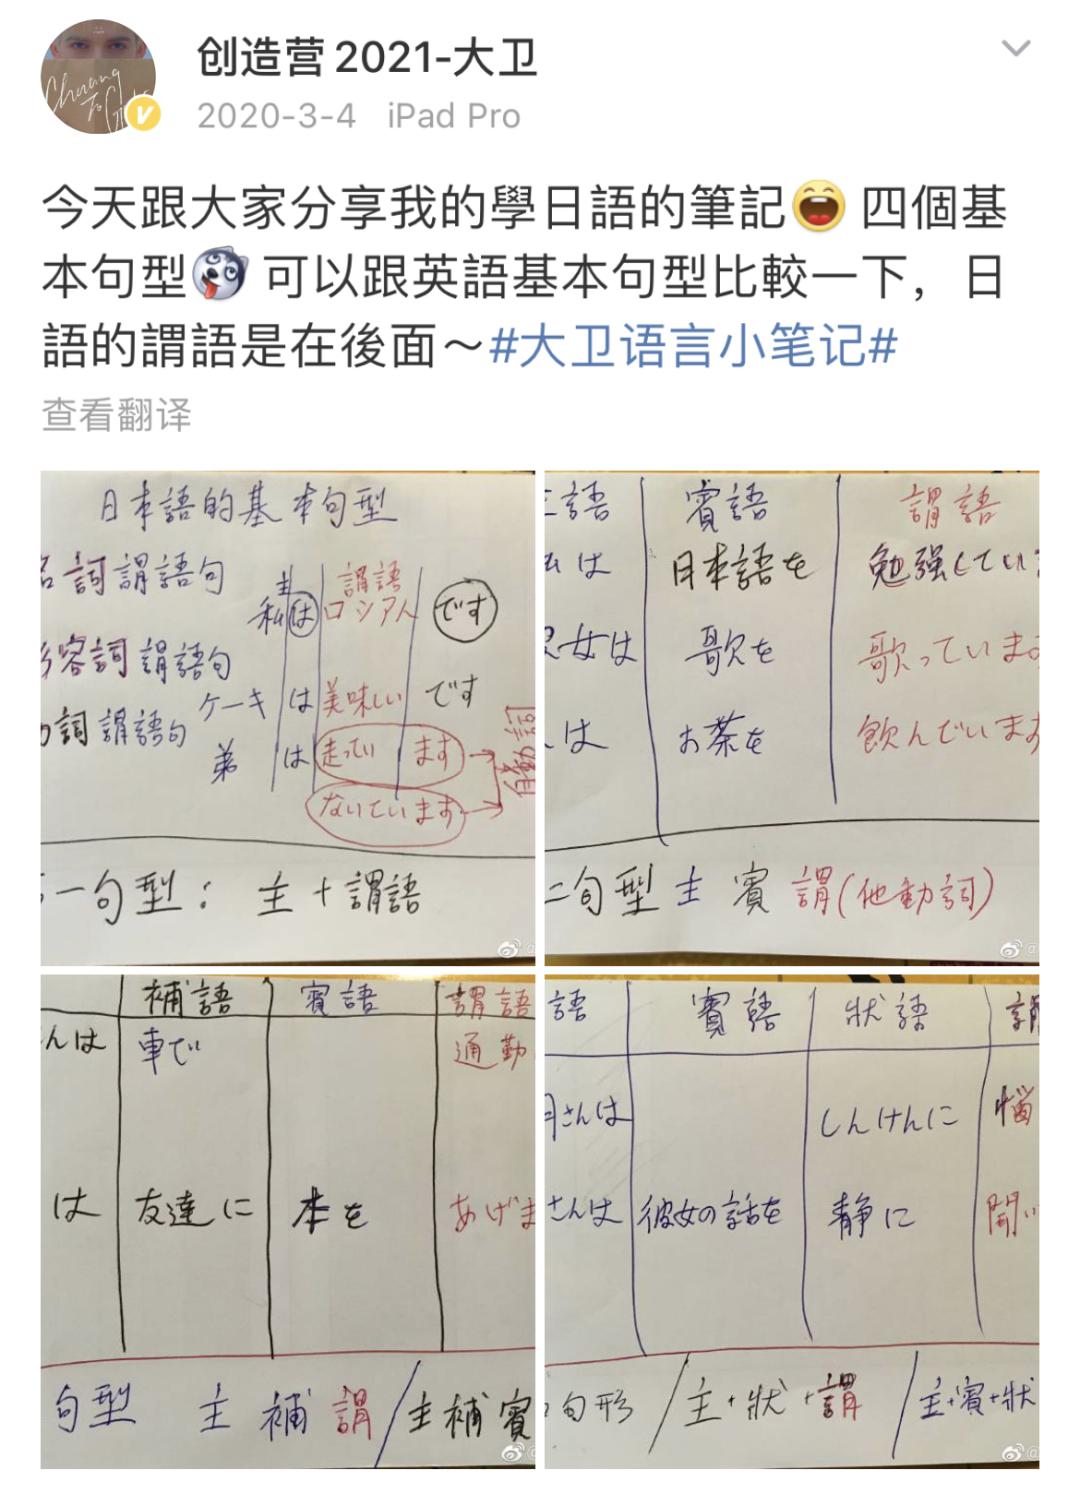 创造营2021-大卫
2020-3-4 iPad Pro
今天跟大家分享我的學日語的筆記 四個基
本句型 可以跟英語基本句型比較一下，日
語的謂語是在後面～#大卫语言小笔记#
查看翻译
日本語的基本句型
名詞謂語句
主 謂語
私 は ロシア人 です
形容詞謂語句
ケーキ は 美味しい です
動詞謂語句
弟 は 走ってい ます
ないています
一句型：主+謂語
主語 賓語 謂語
私は 日本語を 勉強してい
彼女は 歌を 歌っています
は お茶を 飲んでいます
二句型 主 賓 謂(他動詞)
補語 賓語 謂語
んは 車で 通勤
は 友達に 本を あげま
句型 主 補 謂/主補賓
語 賓語 狀語 謂
さんは しんけんに 悩
さんは 彼女の話を 静に 聞い
句形/主+狀+謂/主+賓+狀